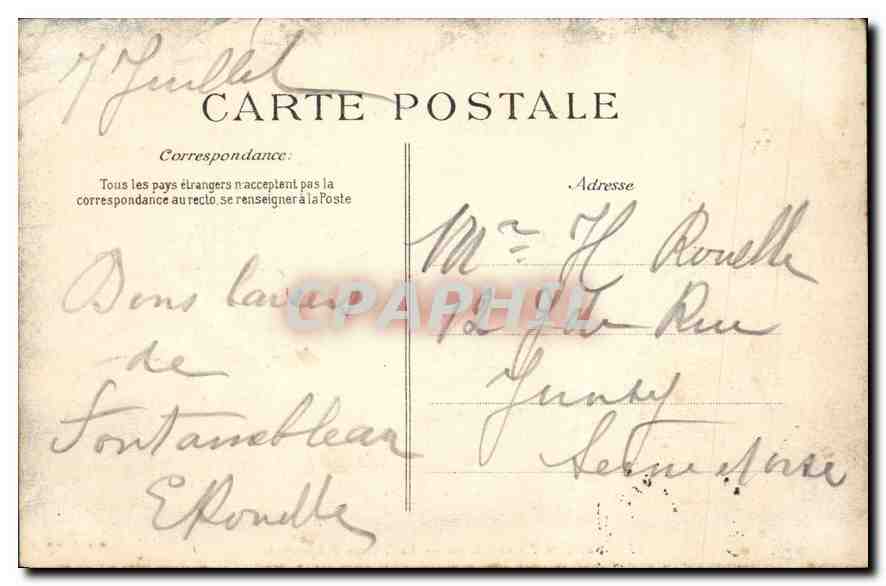 7 Juillet
CARTE POSTALE
Correspondance:
Tous les pays étrangers n'acceptent pas la
correspondance au recto, se renseigner à la Poste
Bons
de
Fontainebleau
E Rouelle
Adresse
Mr H Rouelle
12 Rue
Seine et oise
CPAPHIL